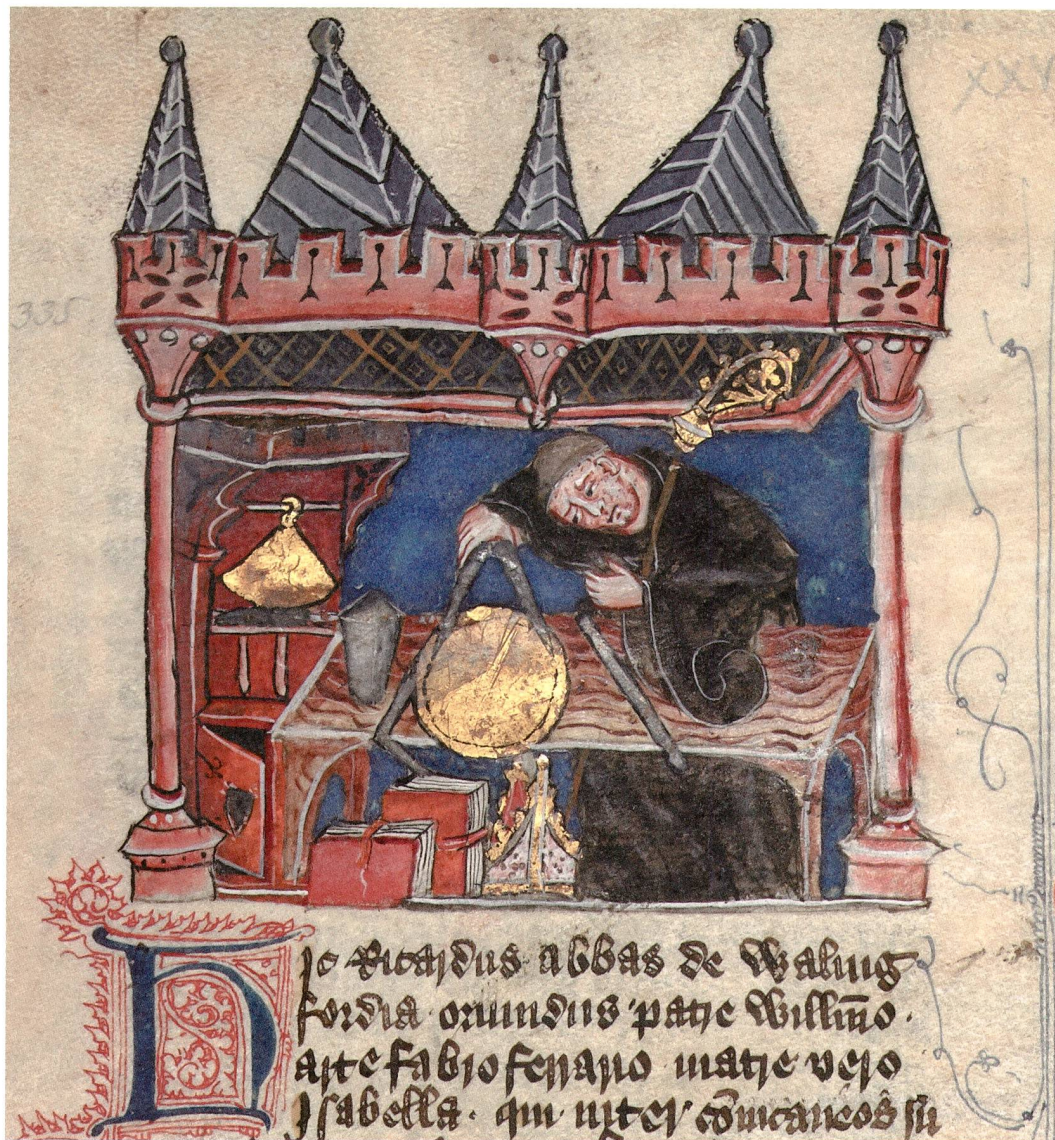 XXV
335
Hic Ricardus abbas de Waling
fordia oriundus patre Willmo.
arte fabro ferrario matre vero
Isabella. qui inter